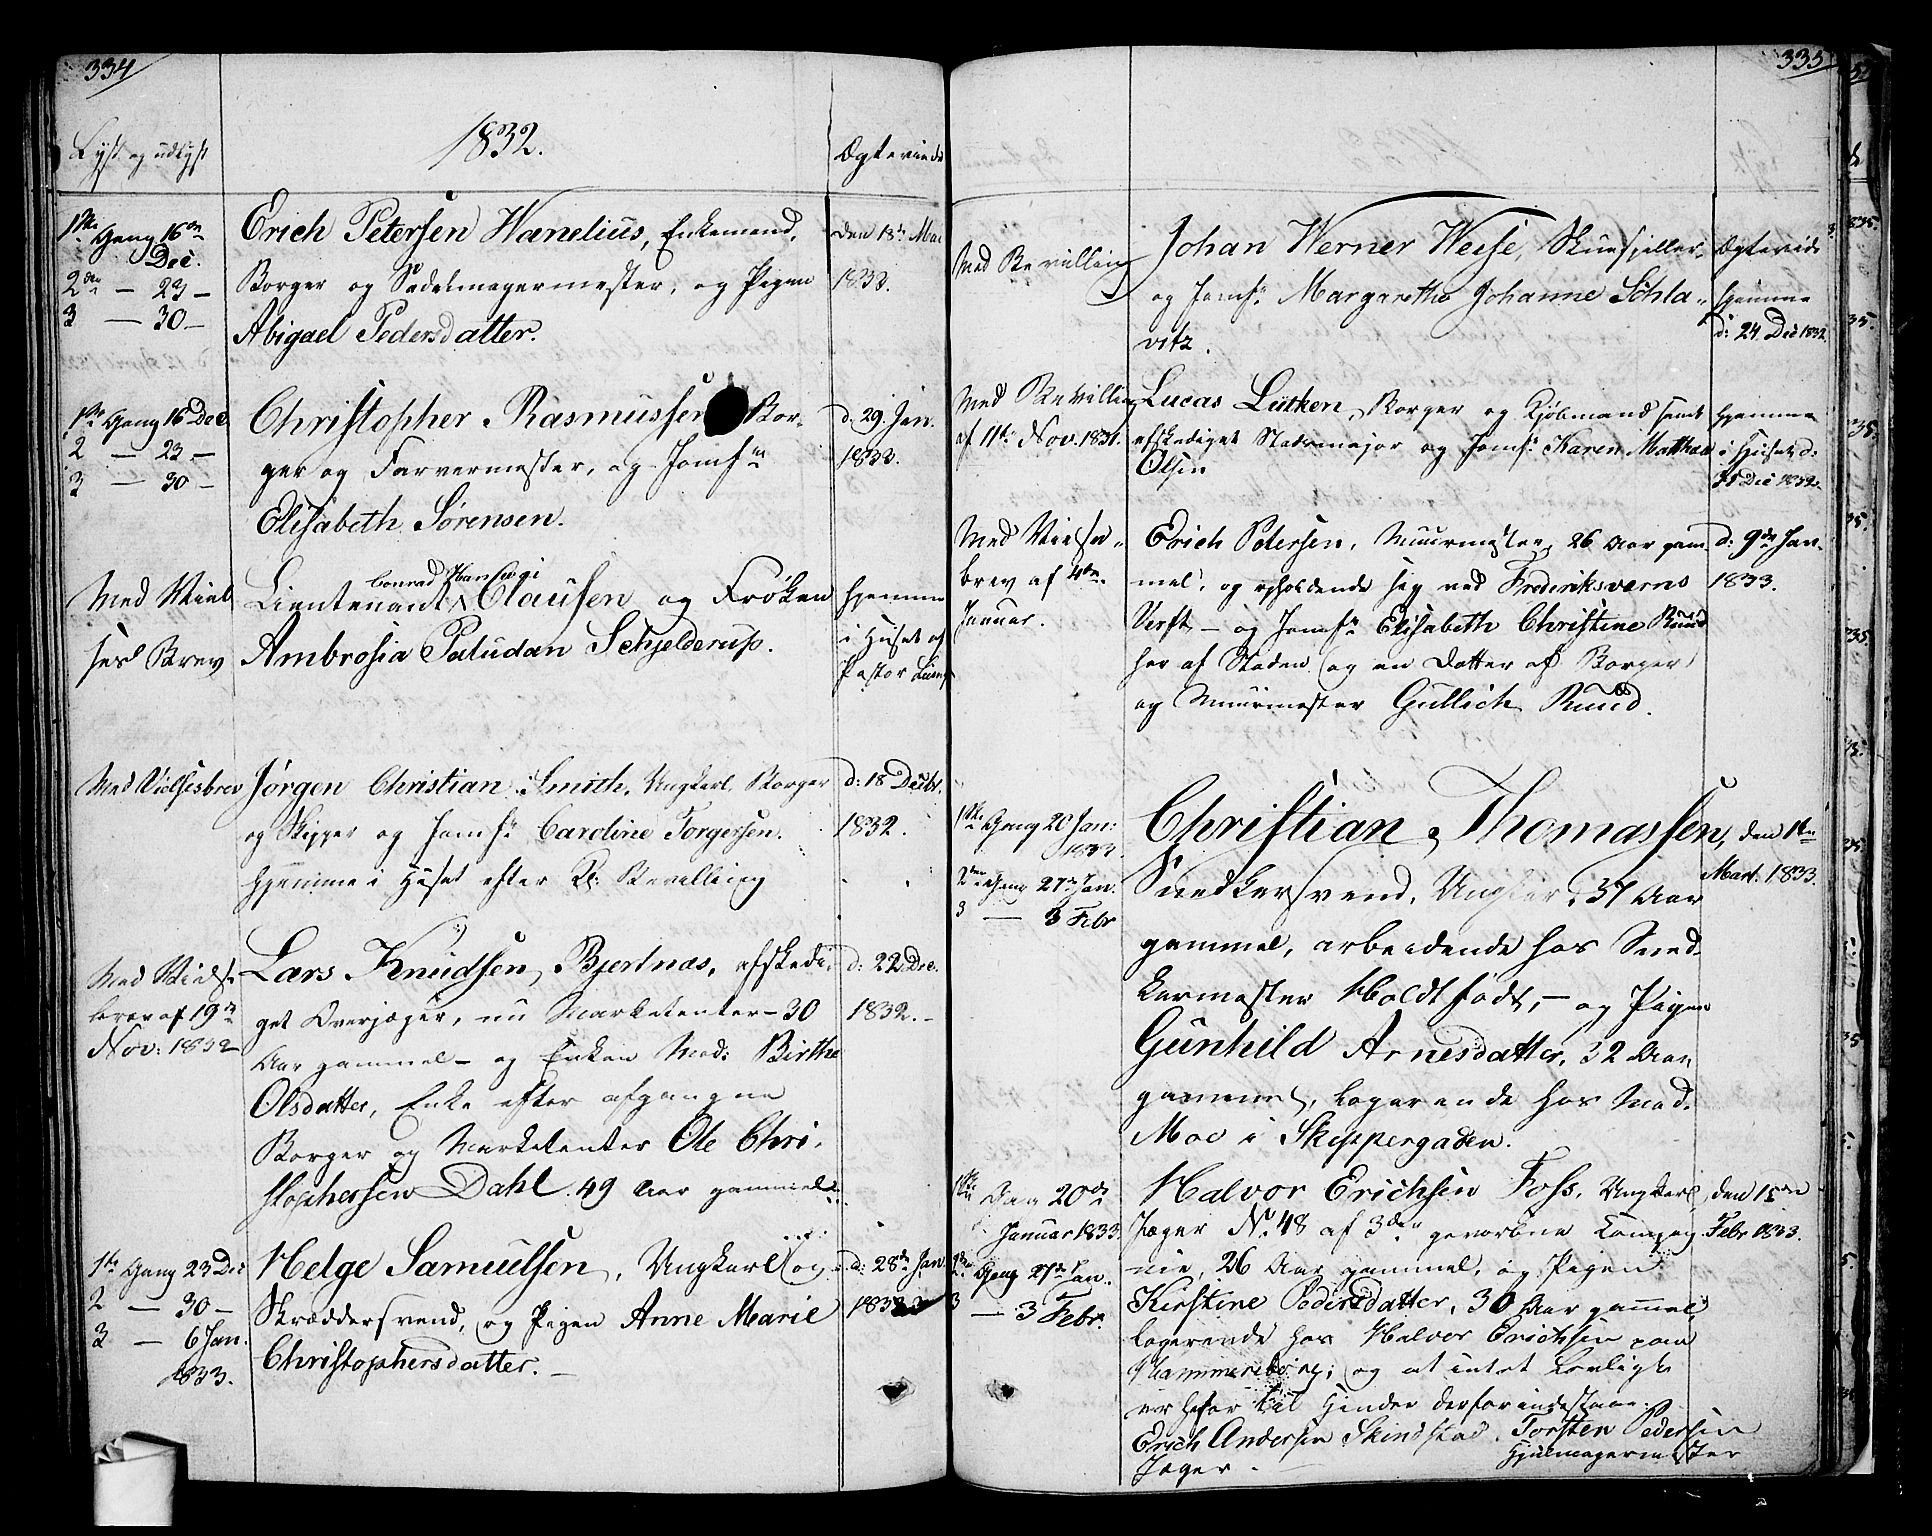 334
Lyst og udlyst
1832.
Ægteviede
1ste Gang 16de
Dec.
2den — 23 —
3 — 30 —
Erich Petersen Wanelius, Enkemand,
Borger og Sadelmagermester, og Pigen
Abigael Pedersdatter.
den 18de Mai
1833.
1ste Gang 16 Dec.
2 — 23 —
3 — 30 —
Christopher Rasmussen Bor-
ger og Farvermester, og Jomfru
Elisabeth Sørensen.
d: 29. Jan.
1833.
Med Viel
ses Brev
Conrad
Lieutenant Clausen og Frøken
Ambrosia Paludan Schjelderup.
hjemme
i Huset af
Pastor
Med Vielsesbrev
Jørgen Christian Smith, Ungkarl, Borger
og Skipper og Jomfr Caroline Torgersen.
hjemme i Huset efter Kl: Bevilling
d: 18 Decbr.
1832.
Med Vielses-
brev af 19de
Nov: 1832
Lars Knudsen Bjertnæs, afskedi-
get Overjæger, nu Marketenter – 30
Aar gammel – og Enken Mad: Birthe
Olsdatter, Enke efter afgangne
Borger og Marketenter Ole Chri-
stophersen Dahl. 49 Aar gammel.
d: 22 Dec.
1832. –
1ste Gang 23 Dec
2 — 30 —
3 — 6 Jan.
1833.
Helge Samuelsen, Ungkarl og
Skræddersvend, og Pigen Anne Marie
Christophersdatter. –
d: 28de Jan.
1833
335
Med Bevilling
Johan Werner Weise, Skuespiller
og Jomfr Margarethe Johanne Schla-
vitz.
Ægteviede
hjemme
d: 24 Dec 1832.
Med Bevilling
af 11te Nov. 1831.
Lucas Lütken, Borger og Kjøbmand samt
afskediget Stadsmajor og Jomfr Karen Mathea
Olsen
hjemme
i Huset d:
Dec 1832.
Med Vielses-
brev af 4de
Januar.
Erich Petersen, Muurmester, 26 Aar gam-
mel, og opholdende sig ved Frederiksværns
Verft – og Jomfr Elisabeth Christine Ruud
her af Staden (og en Datter af Borger
og Muurmester Gullich Ruud.
d: 9de Jan.
1833.
1ste Gang 20 Jan:
1833.
2den Gang 27 Jan.
3 — 3 Febr
Christian Thomassen,
Snedkersvend, Ungkarl, 37 Aar
gammel, arbeidende hos Sned-
kermester Holdtfodt, – og Pigen
Gunhild Arnesdatter, 32 Aar
gammel, logerende hos Mad.
Moe i Skippergaden.
den 1ste
Mart. 1833.
1ste Gang 20de
Januar 1833.
2den Gang 27de Jan.
3 — 3 Febr.
Halvor Erichsen Foss, Ungkarl,
Jæger No. 48 af 3die gevorbne Compag-
nie, 26 Aar gammel, og Pigen
Kirstine Pedersdatter, 30 Aar gammel,
logerende hos Halvor Erichsen paa
Hammersborg; og at intet Lovligt
er til Hinder derfor indestaaer
Erich Andersen Skindstad Torsten Pedersen
Jæger. Hjulmagermester
den 15de
Febr 1833.